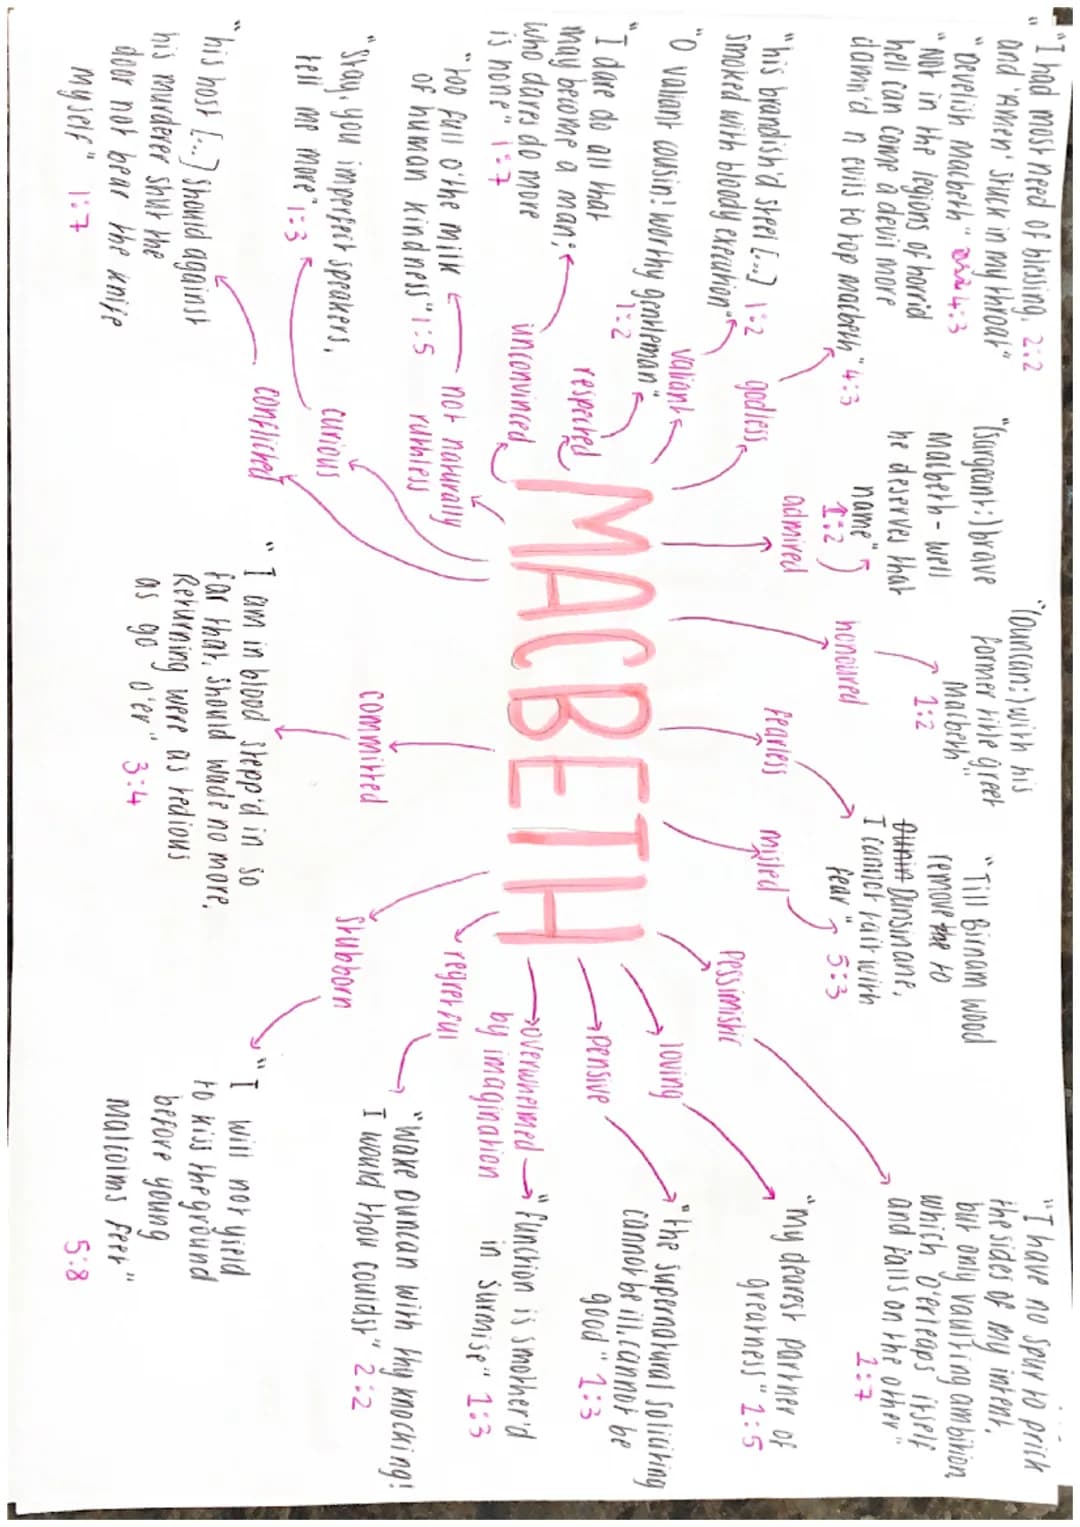 "I had most need of blessing, 2:2
and 'Amen' stuck in my throat"
"Devilish Macbeth" 4:3
"Not in the legions of horrid
hell can come a devil more
damn'd n evils to top macbeth" 4:3
godless
"his brandish'd steel [...] 1:2
smoked with bloody execution"
valiant
"O valiant cousin! worthy gentleman"
1:2
respected
"I dare do all that
may become a man;
who dares do more
is none" 1:7
unconvinced
"too full o'the milk
of human kindness" 1:5
not naturally
ruthless
"Stay, you imperfect speakers,
tell me more" 1:3
curious
"his host [...] should against
his murderer shut the
door not bear the knife
myself" 1:7
conflicted
"(sargeant:) brave
Macbeth - well
he deserves that
name"
1:2
admired
"(Duncan:) with his
former title greet
Macbeth"
1:2
honoured
fearless
"Till Birnam wood
remove to
Dunsinane,
I cannot taint with
fear" 5:3
misled
MACBETH
pessimistic
"I have no spur to prick
the sides of my intent,
but only vaulting ambition
which O'erleaps itself
and falls on the other"
1:7
loving
"my dearest partner of
greatness" 1:5
pensive
"the supernatural soliciting
cannot be ill, cannot be
good" 1:3
overwhelmed
by imagination
"function is smother'd
in surmise" 1:3
regretful
"Wake duncan with thy knocking!
I would thou couldst" 2:2
committed
"I am in blood stepp'd in so
far that, should wade no more,
Returning were as tedious
as go o'er" 3:4
stubborn
"I will not yield
to kiss the ground
before young
malcolms feet"
5:8